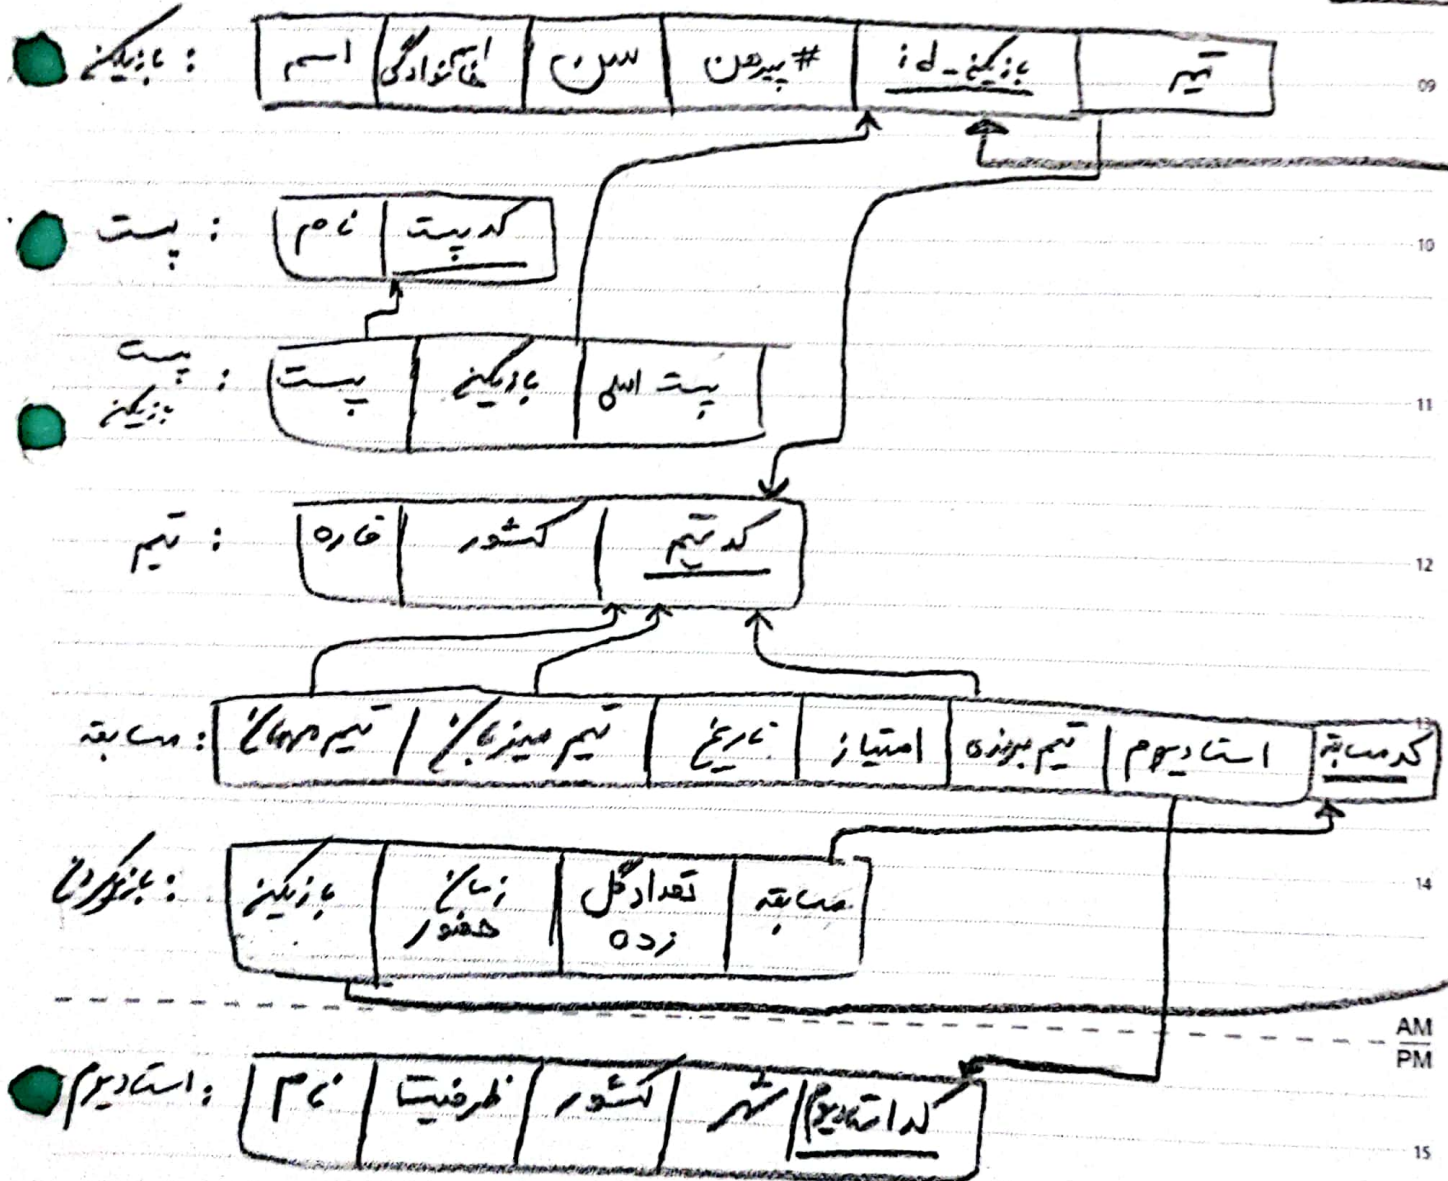 بازیکن : اسم اسم خانوادگی سن # پیرهن بازیکن_id تیم
09
پست : نام کد پست
10
پست بازیکن : پست بازیکن پست اصلی
11
تیم : قاره کشور کد تیم
12
مسابقه : تیم مهمان تیم میزبان تاریخ امتیاز تیم برنده استادیوم کد مسابقه
13
بازی کردن : بازیکن زمان حضور تعداد گل زده مسابقه
14
AM
PM
استادیوم : نام ظرفیت کشور شهر کد استادیوم
15